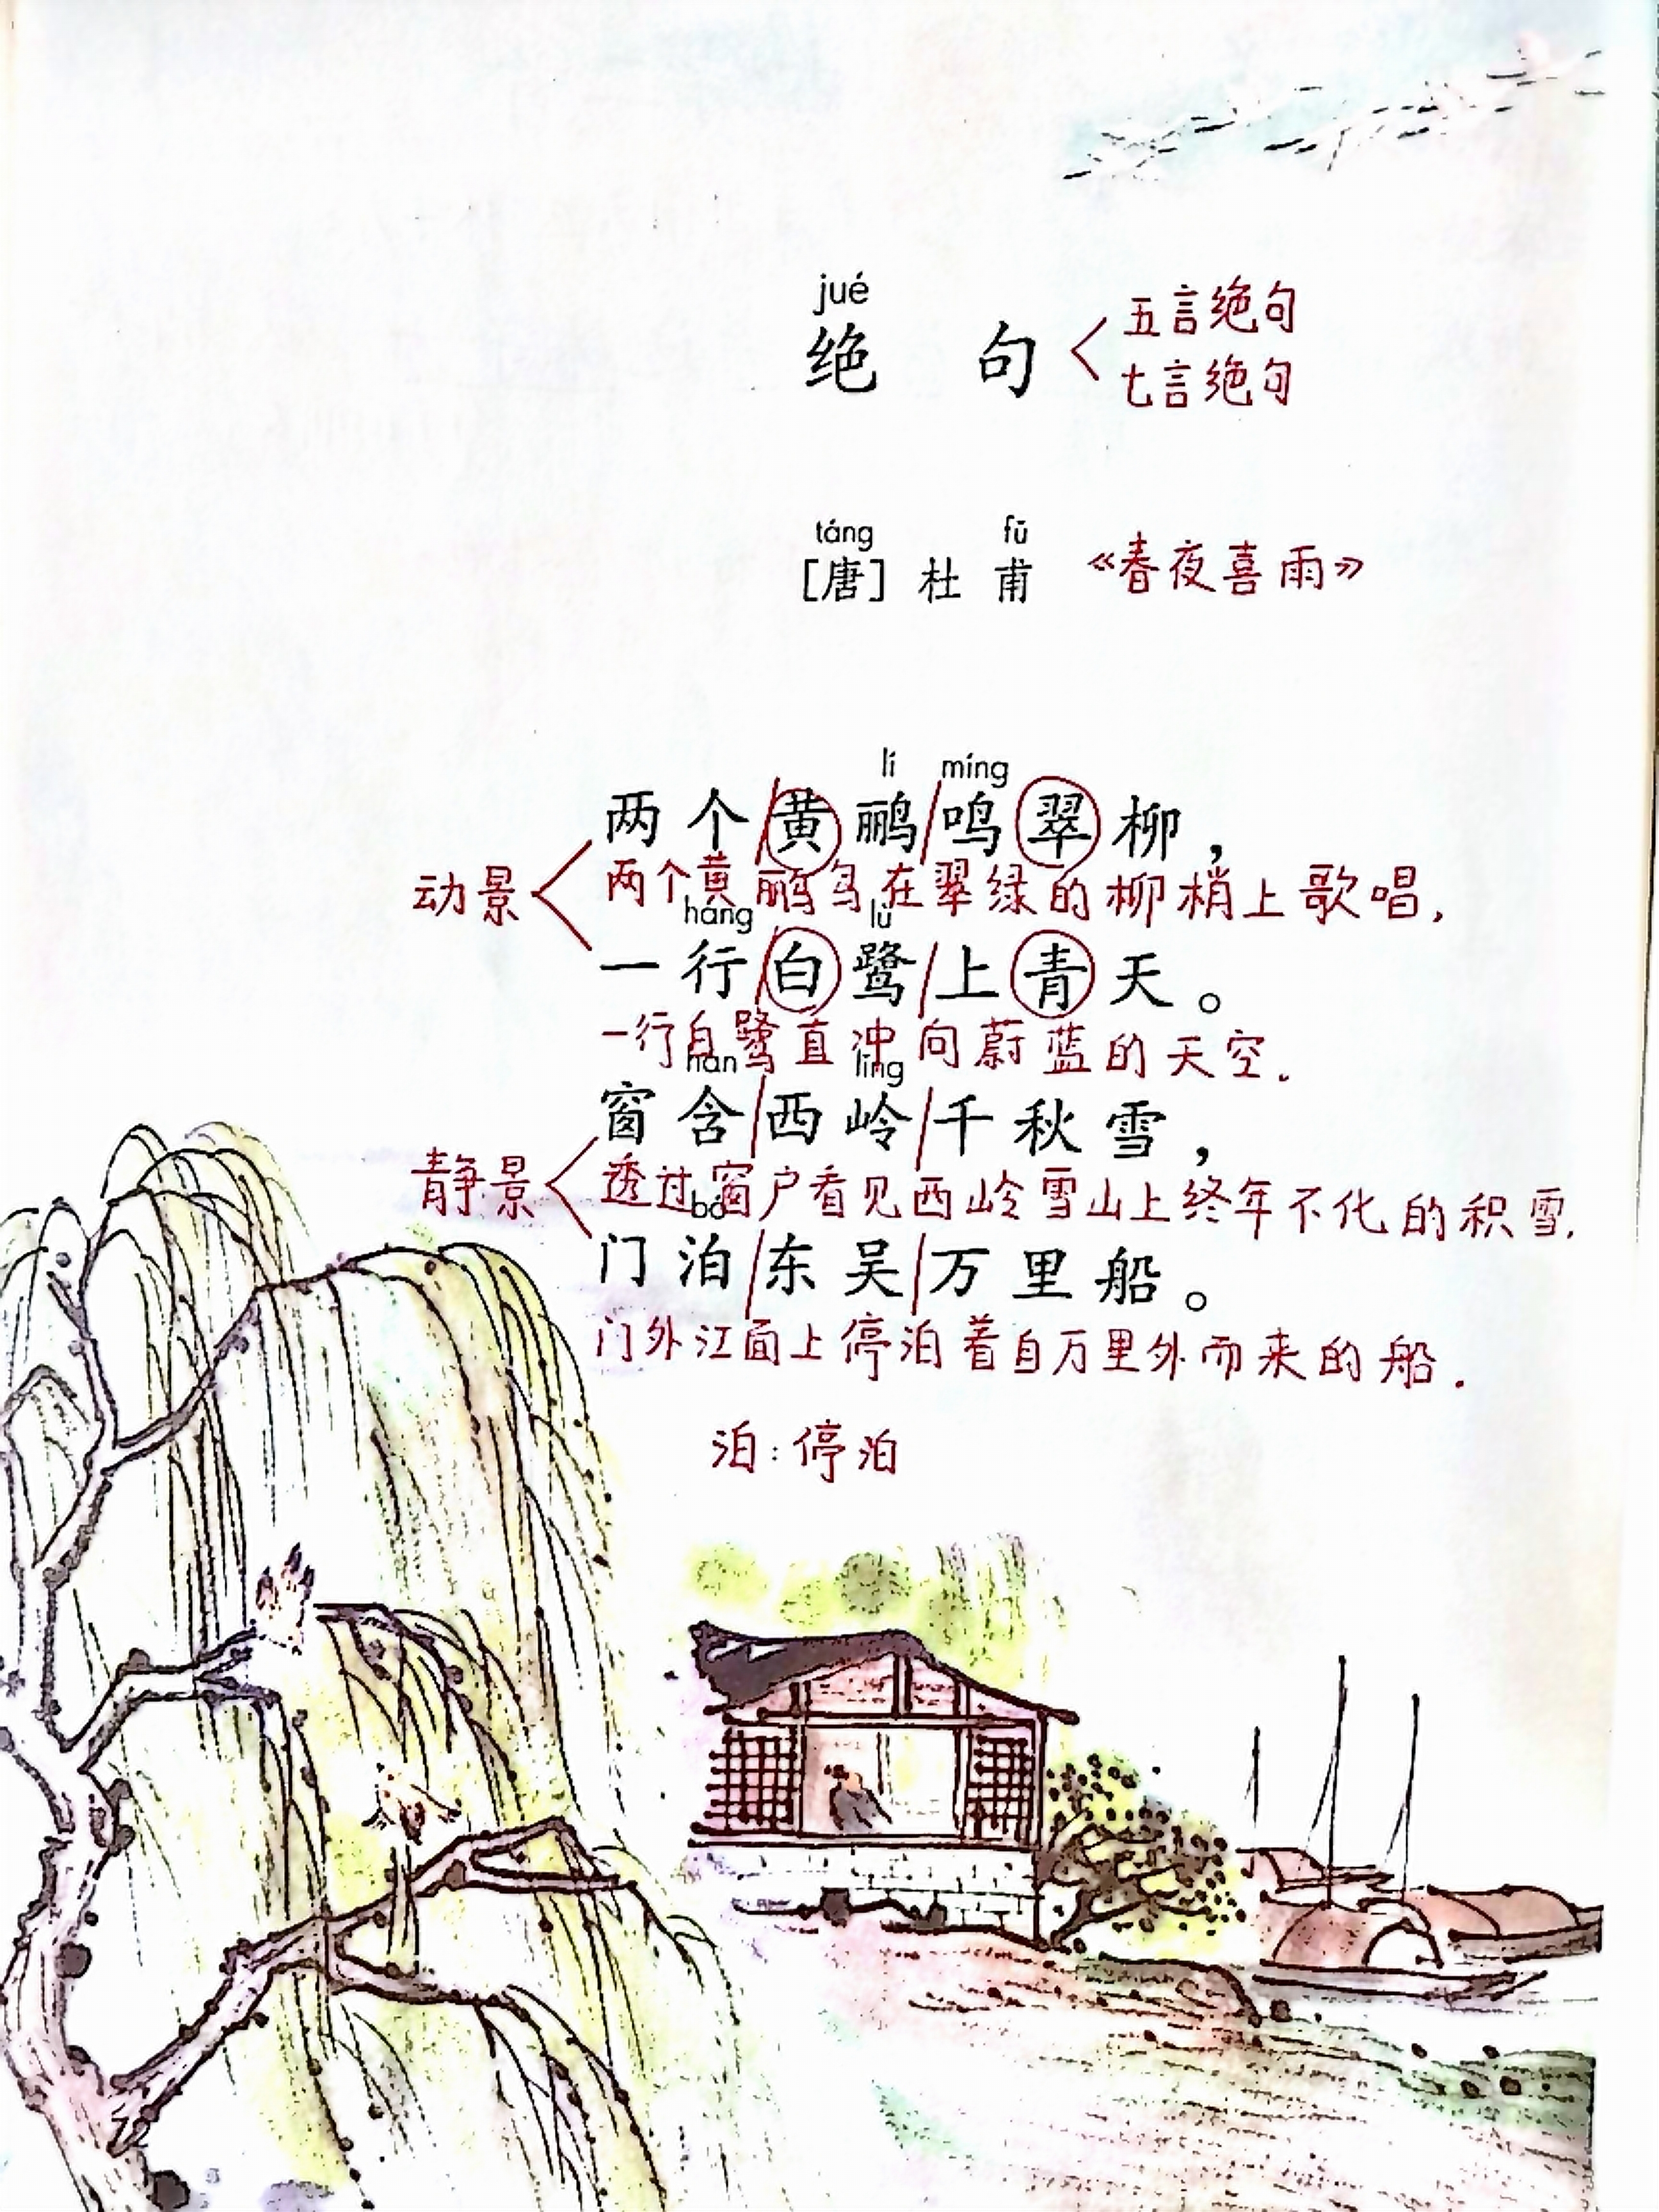 jué
绝 句
五言绝句
七言绝句
táng fǔ
[唐] 杜 甫 《春夜喜雨》
lí míng
两个/黄鹂/鸣翠柳，
动景
两个黄鹂鸟在翠绿的柳梢上歌唱.
háng lù
一行/白鹭/上青天。
一行白鹭直冲向蔚蓝的天空.
hán lǐng
窗含/西岭/千秋雪，
静景
透过窗户看见西岭雪山上终年不化的积雪.
bó
门泊/东吴/万里船。
门外江面上停泊着自万里外而来的船.
泊：停泊